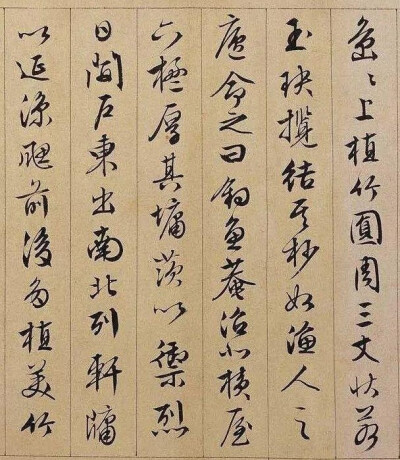 島〻上植竹圓周三丈狀若
玉玦攬結其杪如漁人之
廬命之曰釣魚菴沼北橫屋
六楹厚其墉茨以禦烈
日開戶東出南北列軒牖
以延涼颸前後多植美竹